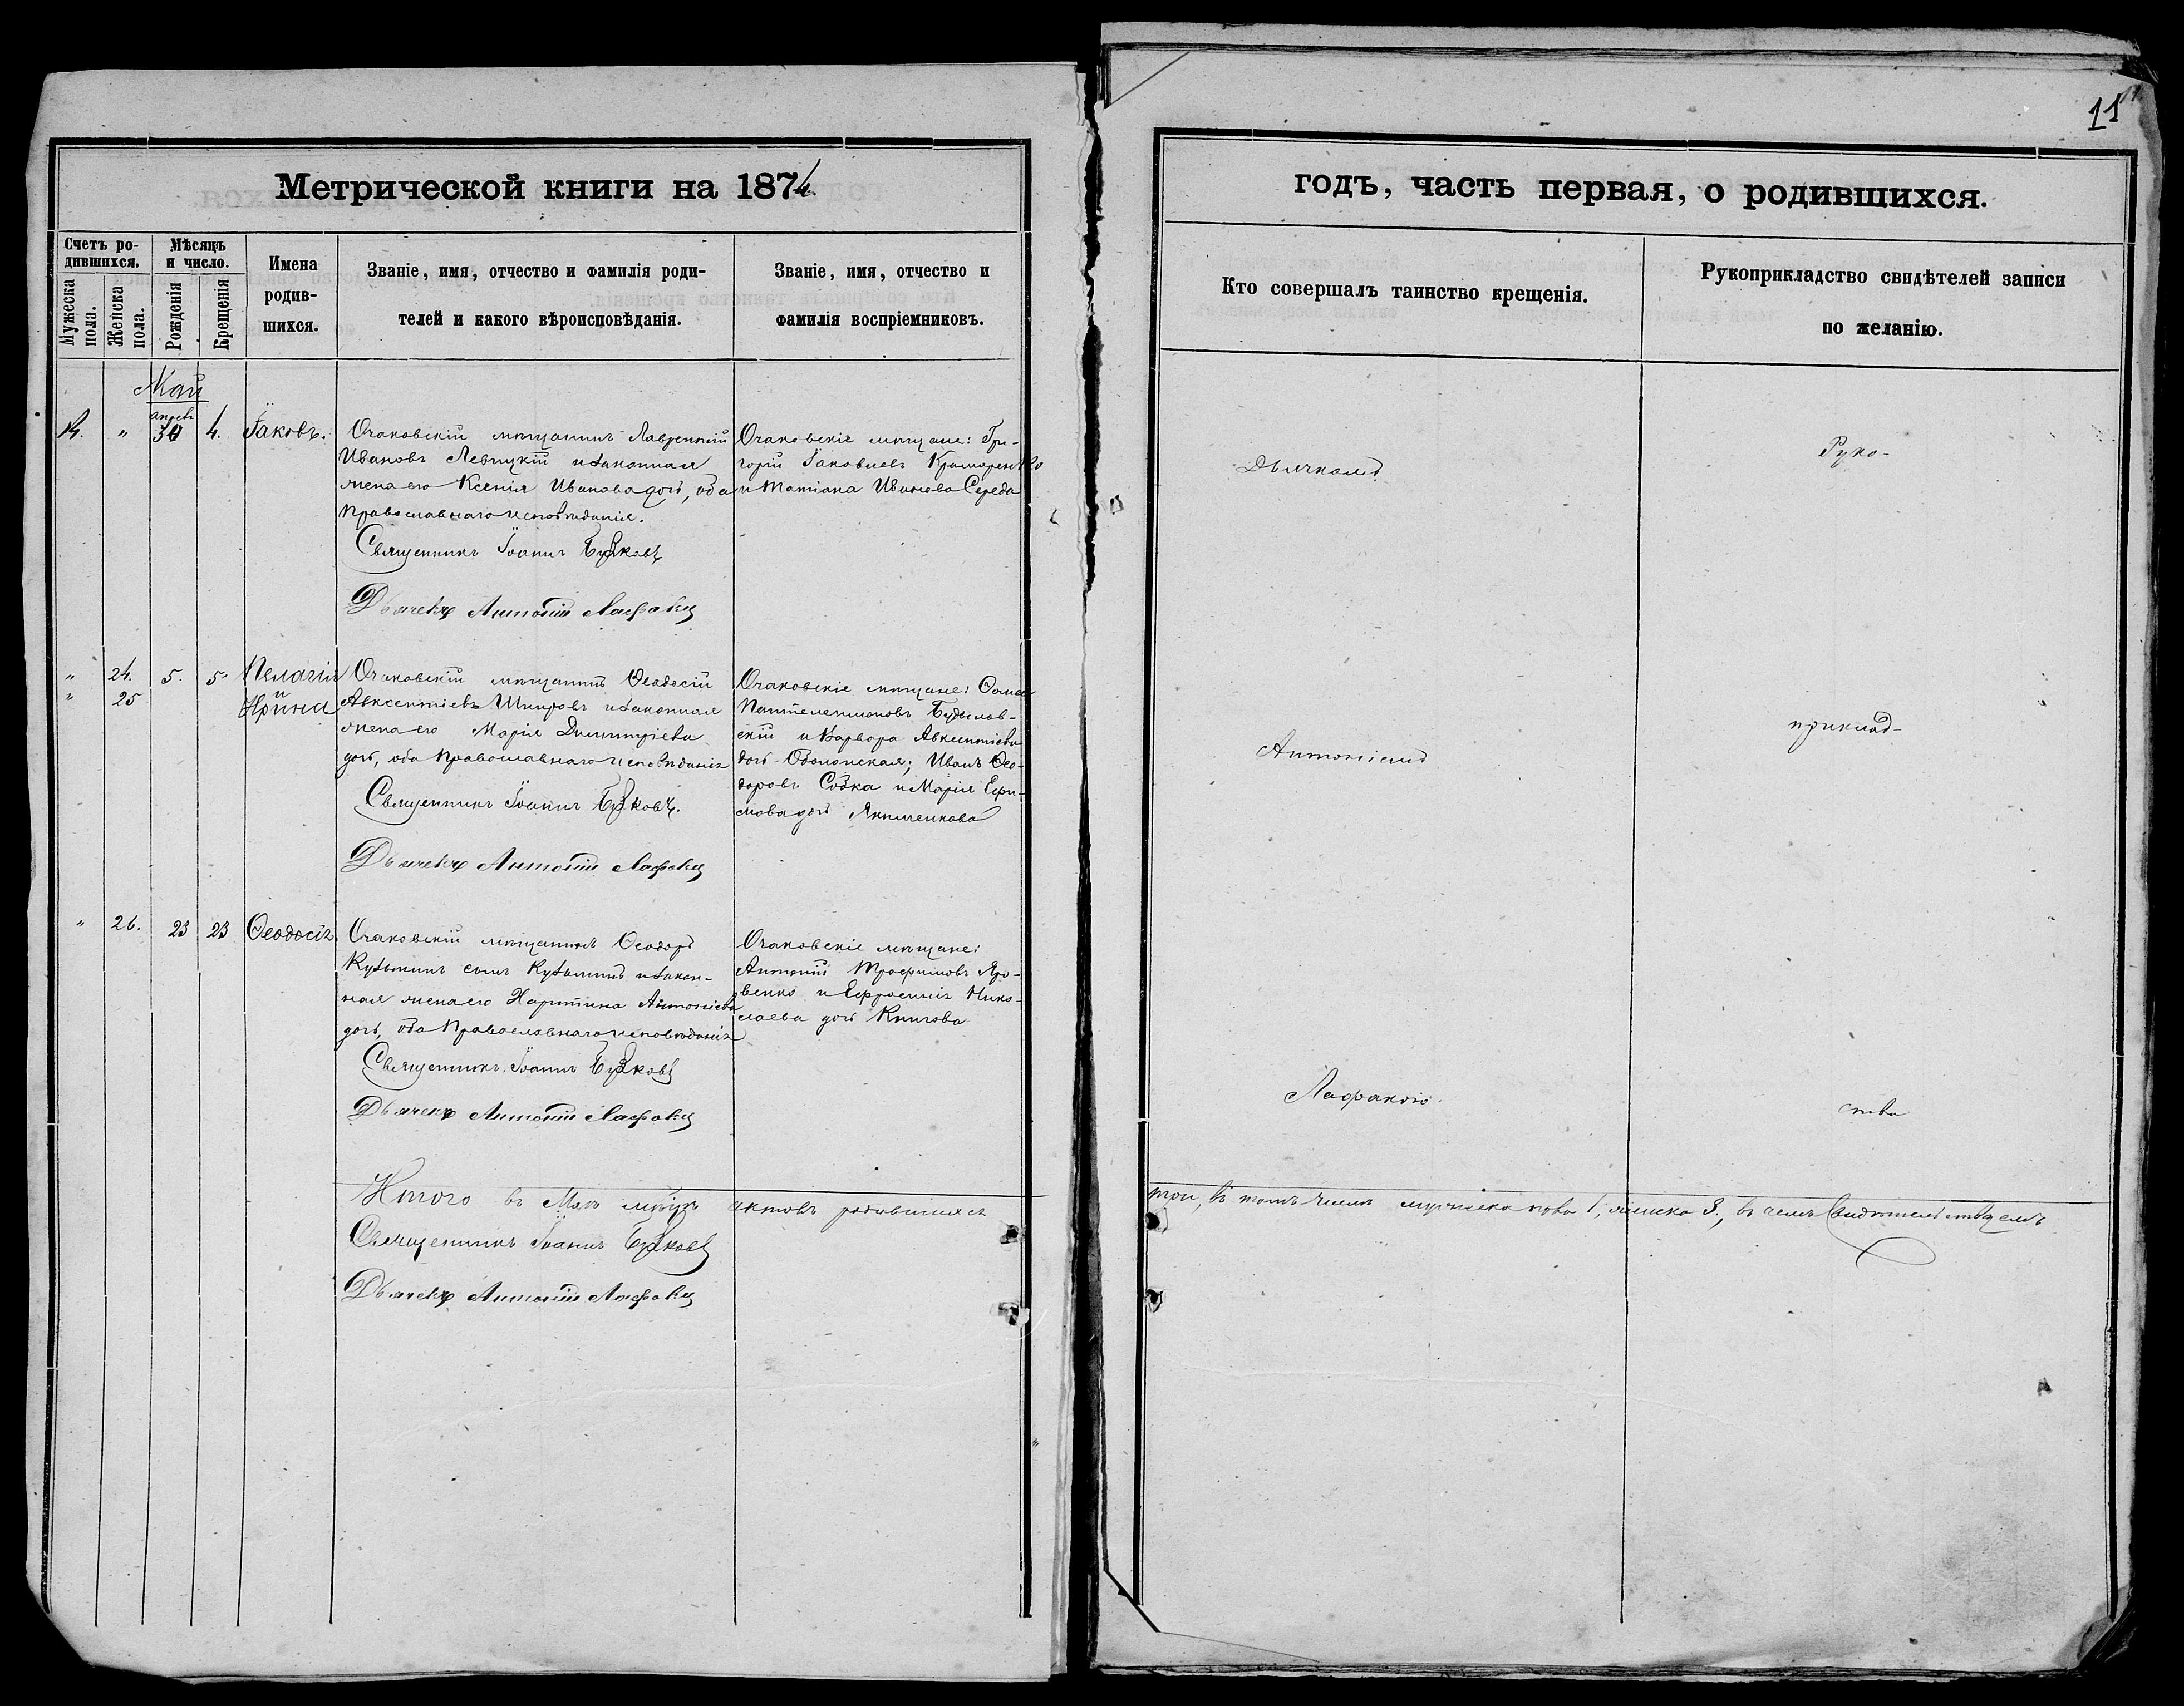 11
Метрической книги на 1874
годъ, часть первая, о родившихся.
Счетъ ро-
дившихся.
Мужеска
пола.
Женска
пола.
Мѣсяцъ
и число.
Рожденія
Крещенія
Имена
родив-
шихся.
Званіе, имя, отчество и фамилія роди-
телей и какого вѣроисповѣданія.
Званіе, имя, отчество и
фамилія воспріемниковъ.
Кто совершалъ таинство крещенія.
Рукоприкладство свидѣтелей записи
по желанію.
Май
" апрель 30 4. Іаковъ.
Очаковскій мѣщанинъ Лаврентій
Ивановъ Левицкій и законная
жена его Ксенія Иванова дочь, оба
Православнаго исповѣданія.
Священникъ Іоаннъ
Дьячекъ Антоній
Очаковскіе мѣщане: Гри-
горій Іаковлевъ Крамаренко
и Татіана Иванова Середа
Дьячкомъ
Руко-
" 24. 5. 5. Пелагія
" 25 и
Ирина
Очаковскій мѣщанинъ Ѳеодосій
Авксентіевъ и законная
жена его Марія Димитріева
дочь, оба Православнаго исповѣданія
Священникъ Іоаннъ
Дьячекъ Антоній
Очаковскіе мѣщане: Ѳома
Пантелеимоновъ Будылов-
скій и Варвара Авксентіева
дочь Оболонская; Иванъ Ѳео-
доровъ и Марія Ефи-
мова дочь Якименкова
Антоніемъ
приклад-
" 26. 23 23 Ѳеодосія
Очаковскій мѣщанинъ Ѳеодоръ
Кузьминъ сынъ Кузьминъ и закон-
ная жена его Харитина Антоніева
дочь, оба Православнаго исповѣданія
Священникъ Іоаннъ
Дьячекъ Антоній
Очаковскіе мѣщане:
Антоній Трофимовъ Яро-
венко и Ефросинія Нико-
лаева дочь
ства
Итого въ Маѣ мѣсяцѣ актовъ родившихся
три, въ томъ числѣ мужеска пола 1, женска 3., въ чемъ Свидѣтельствуемъ
Священникъ Іоаннъ
Дьячекъ Антоній